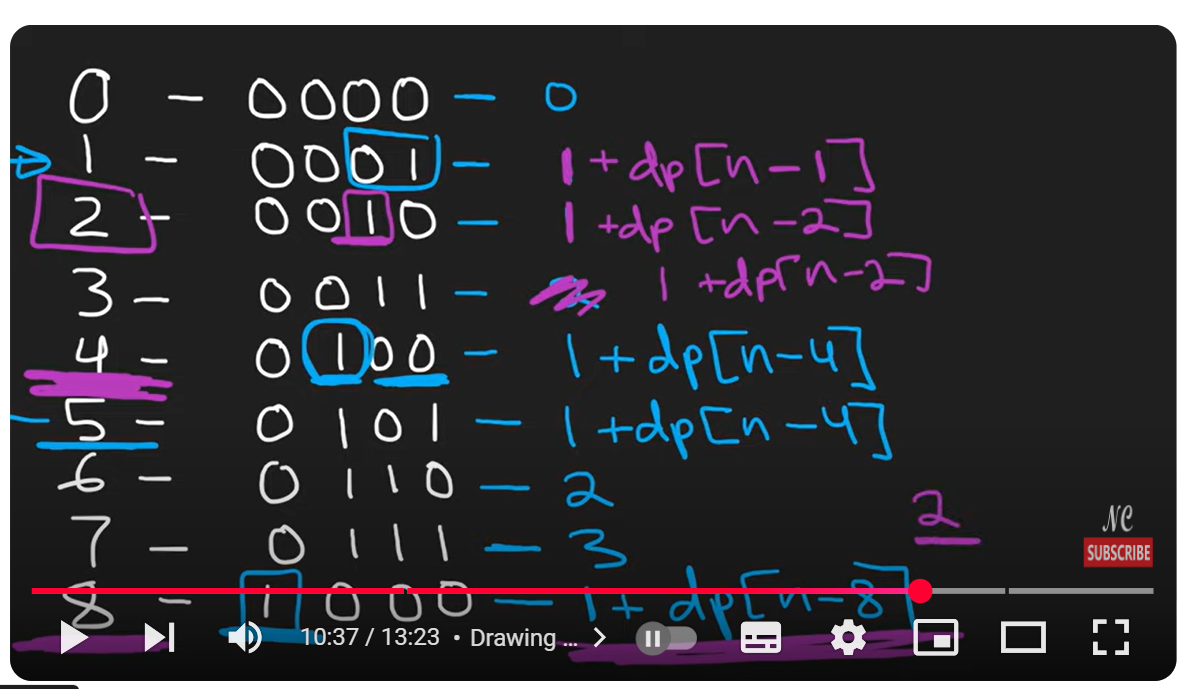 0 - 0000 - 0
1 - 0001 - 1 + dp[n-1]
2 - 0010 - 1 + dp[n-2]
3 - 0011 - 1 + dp[n-2]
4 - 0100 - 1 + dp[n-4]
5 - 0101 - 1 + dp[n-4]
6 - 0110 - 2
7 - 0111 - 3
2
NC
SUBSCRIBE
8 - 1000 - 1 + dp[n-8]
10:37 / 13:23 • Drawing ...